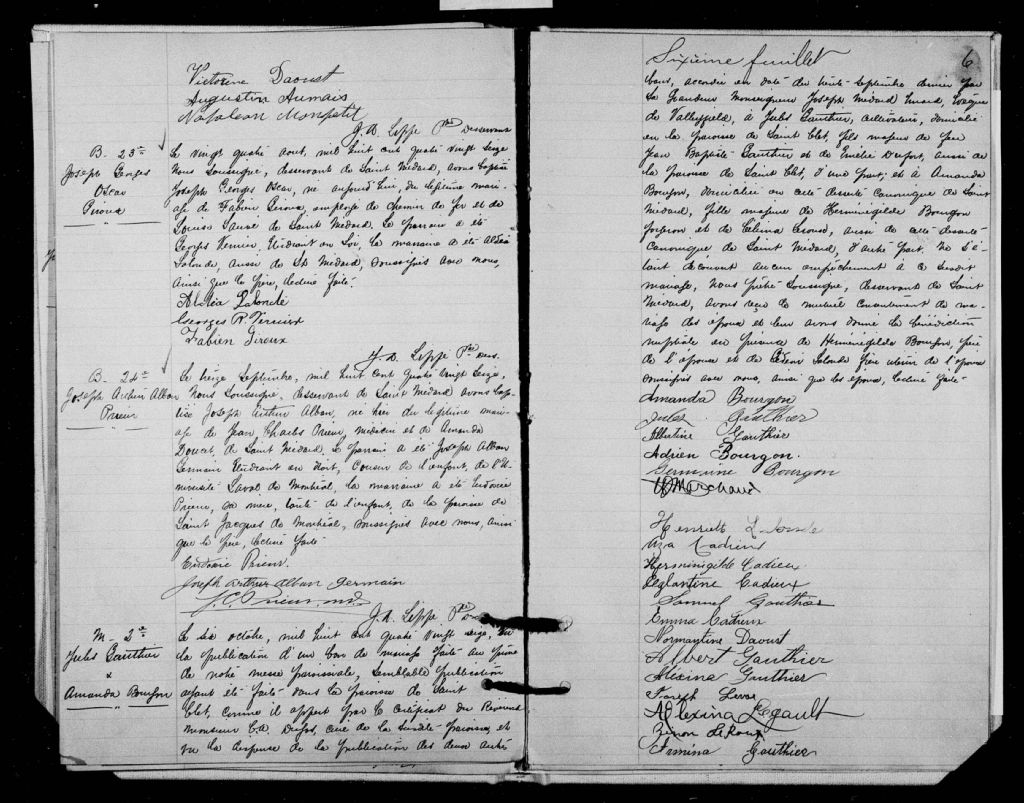 Victorine Daoust
Augustin Aumais
Napoléon Monpetit
J. A. Lippé Ptre Desservant
B. 23me
Joseph Georges
Oscar
Giroux
Le vingt quatre aout, mil huit cent quatre vingt seize
Nous soussigné, desservant de Saint Médard, avons baptisé
Joseph Georges Oscar, né aujourd'hui, du légitime mari-
age de Fabien Giroux, employé de chemin de fer et de
Louise Sauvé de Saint Médard. Le parrain a été
Georges Vernier, Etudiant en Loi, la marraine a été Alexia
Lalonde, aussi de St Médard, soussignés avec nous,
ainsi que le père, lecture faite.
Lalonde
Georges R. Vernier
Fabien Giroux
J. A. Lippé Ptre Dess.
B. 24me
Joseph Arthur Alban
Prieur
Le treize Septembre, mil huit cent quatre vingt seize,
Nous soussigné, desservant de Saint Médard avons bap-
tisé Joseph Arthur Alban, né hier du légitime mari-
age de Jean Charles Prieur, médecin et de Amanda
de Saint Médard. Le parrain a été Joseph Alban
Germain Etudiant en Droit, Cousin de l'enfant, de l'U-
niversité Laval de Montréal, la marraine a été
Prieur, tante de l'enfant, de la paroisse de
Saint Jacques de Montréal, soussignés avec nous, ainsi
que le père, lecture faite
Prieur
Joseph Arthur Alban Germain
J. C. Prieur, m.d.
J. A. Lippé Ptre
M. 2me
Jules Gauthier
&
Amanda Bourgon
Le six octobre, mil huit cent quatre vingt seize, vu
la publication d'un ban de mariage faite au prône
de notre messe paroissiale, semblable publication
ayant été faite dans la paroisse de Saint
Clet, comme il appert par le certificat du Révérend
monsieur C. A. curé de la susdite paroisse, et
vu la dispense de la publication des deux autres
Sixième feuillet
6
bans, accordée en date du trente septembre dernier par
Sa Grandeur Monseigneur Joseph Médard Emard, Evêque
de Valleyfield, à Jules Gauthier, cultivateur, domicilié
en la paroisse de Saint Clet, fils majeur de feu
Jean Baptiste Gauthier et de Emélie Dufort, aussi de
la paroisse de Saint Clet, d'une part; et à Amanda
Bourgon, domiciliée en cette desserte Canonique de Saint
Médard, fille majeure de Herménégilde Bourgon
forgeron et de Célina aussi de cette desserte
Canonique de Saint Médard, d'autre part. Ne s'é-
tant découvert aucun empêchement à ce susdit
mariage, Nous prêtre Soussigné, desservant de Saint
Médard, avons reçu le mutuel consentement de ma-
riage des époux et leur avons donné la bénédiction
nuptiale en présence de Herménégilde Bourgon, père
de l'épouse et de Lalonde frère utérin de l'époux
soussignés avec nous, ainsi que les époux, lecture faite
Amanda Bourgon
Jules Gauthier
Albertine Gauthier
Adrien Bourgon.
Germaine Bourgon
Marchand
Henriette Lalonde
Cadieux
Herminigilde Cadieux
Eglantine Cadieux
Samuel Gauthier
Emma Cadieux
Normantine Daoust
Albert Gauthier
Alexina Gauthier
Joseph
Adlexina Legault
Gauthier